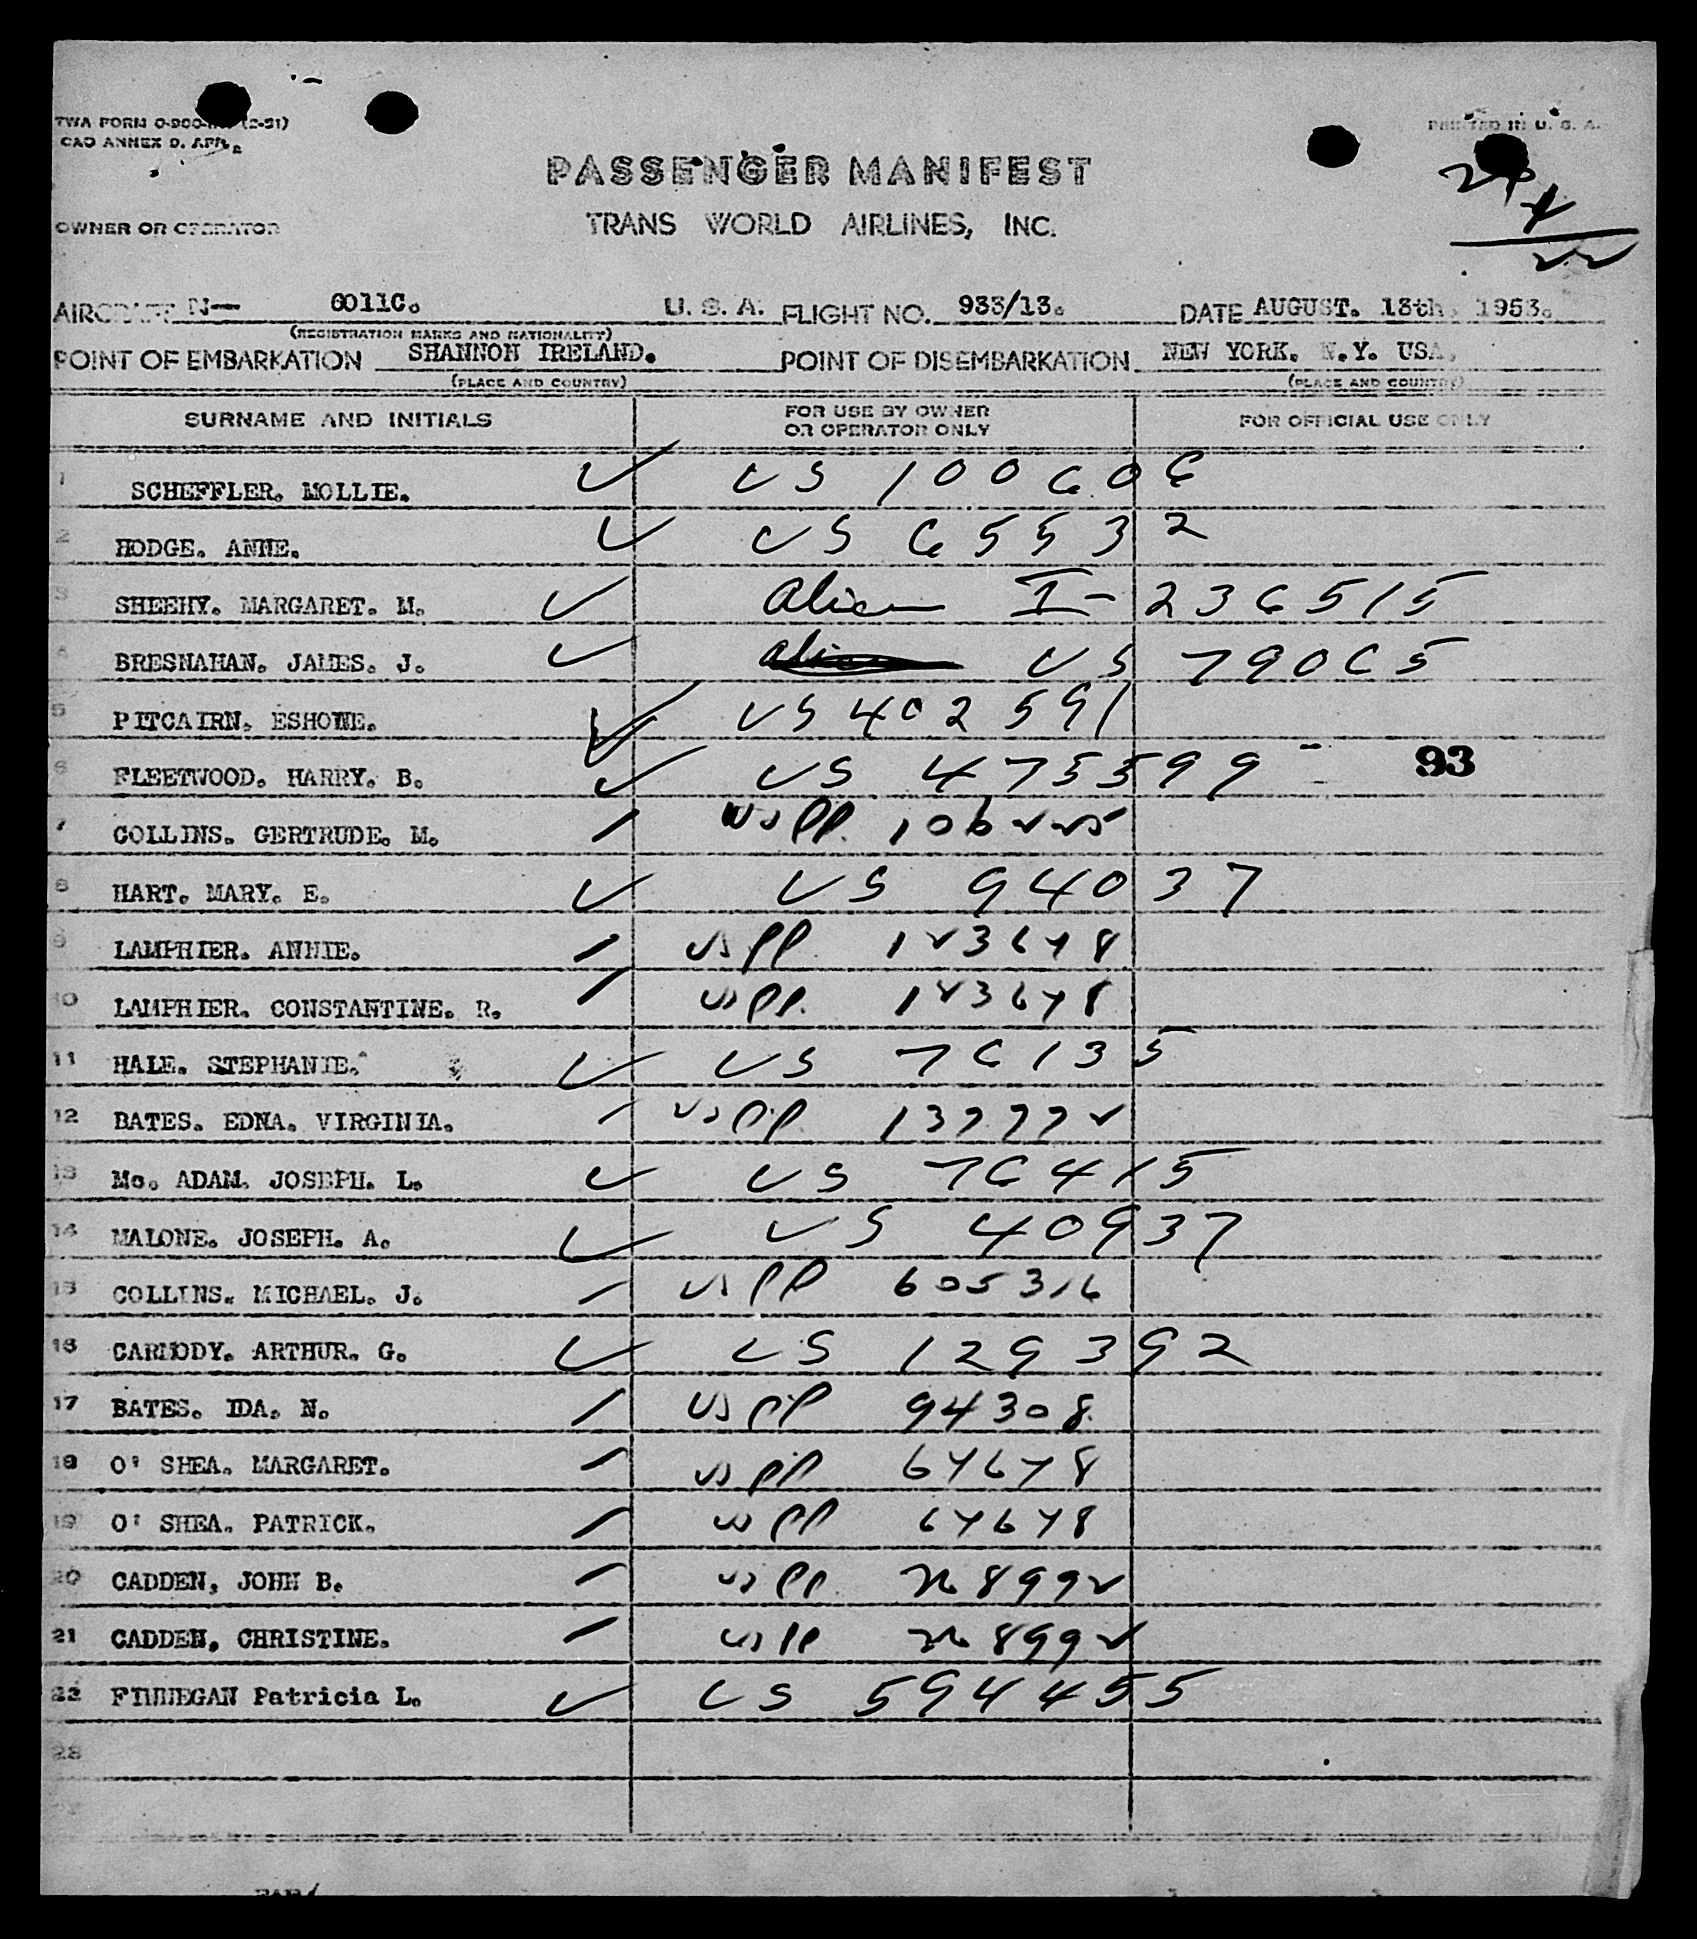 TWA FORM O-900- (2-51)
PRINTED IN U. S. A.
CAO ANNEX 9. APP.
PASSENGER MANIFEST
OWNER OR OPERATOR
TRANS WORLD AIRLINES, INC.
22
AIRCRAFT N— 6011C. U. S. A. FLIGHT NO. 933/13. DATE AUGUST. 13th, 1953.
(REGISTRATION MARKS AND NATIONALITY)
POINT OF EMBARKATION SHANNON IRELAND. POINT OF DISEMBARKATION NEW YORK. N.Y. USA.
(PLACE AND COUNTRY) (PLACE AND COUNTRY)
SURNAME AND INITIALS FOR USE BY OWNER OR OPERATOR ONLY FOR OFFICIAL USE ONLY
1 SCHEFFLER. MOLLIE. US 100606
2 HODGE. ANNE. US 65532
3 SHEEHY. MARGARET. M. alien I-236515
4 BRESNAHAN. JAMES. J. alien US 79065
5 PITCAIRN. ESHOWE. US 402591
6 FLEETWOOD. HARRY. B. US 475599 93
7 COLLINS. GERTRUDE. M. US PP. 106225
8 HART. MARY. E. US 94037
9 LAMPHIER. ANNIE. US PP 123648
10 LAMPHIER. CONSTANTINE. R. US PP. 123648
11 HALE. STEPHANIE. US 76135
12 BATES. EDNA. VIRGINIA. US PP 137772
13 Mc. ADAM. JOSEPH. L. US 76415
14 MALONE. JOSEPH. A. US 40937
15 COLLINS. MICHAEL. J. US PP 605316
16 CARMODY. ARTHUR. G. US 129392
17 BATES. IDA. N. US PP 94308
18 O' SHEA. MARGARET. US PP 64648
19 O' SHEA. PATRICK. US PP 64648
20 CADDEN, JOHN B. US PP 268992
21 CADDEN, CHRISTINE. US PP 268992
22 FINNEGAN Patricia L. US 594455
23